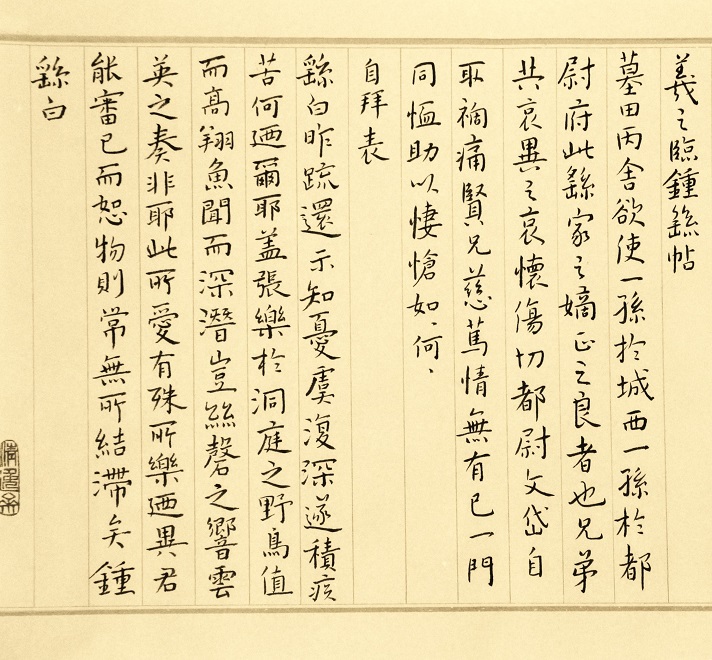 羲之臨鍾繇帖
墓田丙舍欲使一孫於城西一孫於都
尉府此繇家之嫡正之良者也兄弟
共哀異之哀懷傷切都尉文岱自
取禍痛賢兄慈篤情無有已一門
同恤助以悽愴如、何、
自拜表
繇白昨疏還示知憂虞復深遂積疢
苦何迺爾耶蓋張樂於洞庭之野鳥值
而高翔魚聞而深潛豈絲磬之響雲
英之奏非耶此所愛有殊所樂迺異君
能審己而恕物則常無所結滯矣鍾
繇白